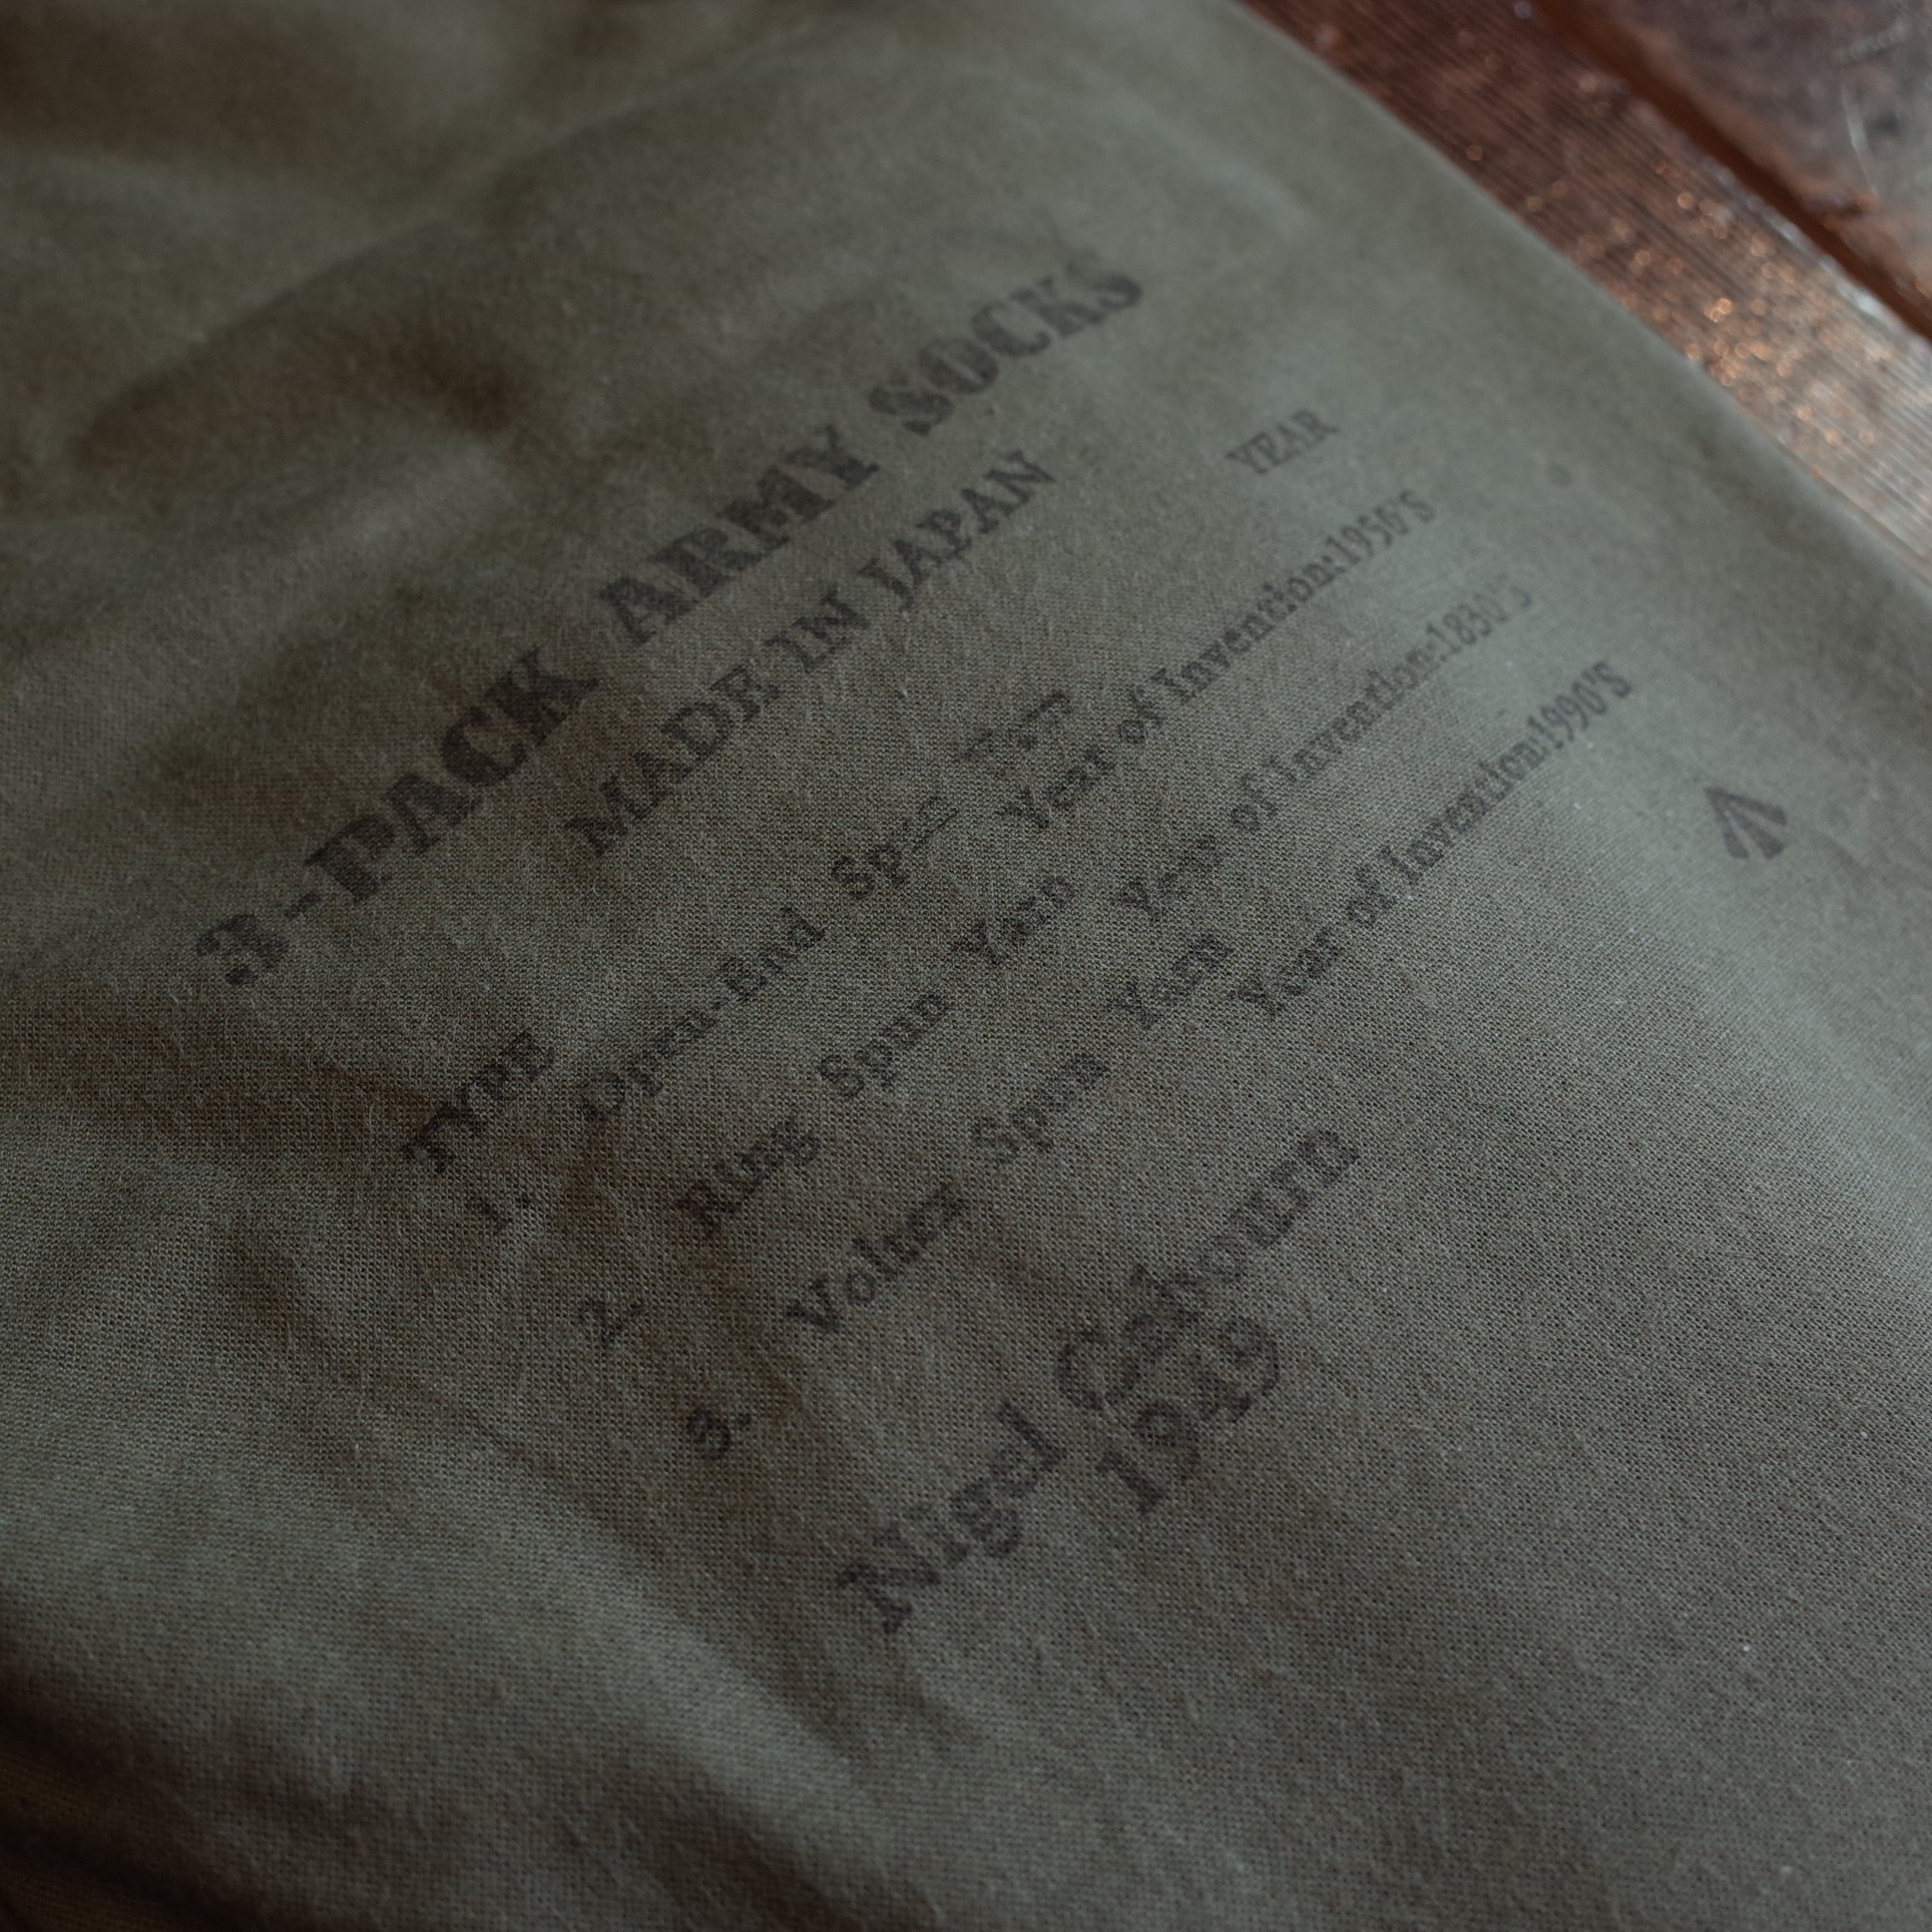 3-PACK ARMY SOCKS
MADE IN JAPAN
TYPE YEAR
1. Open-End Year of Invention:1950'S
2. Ring Spun Yarn Year of Invention:1830'S
3. Spun Yarn Year of Invention:1990'S
Nigel Cabourn
1949